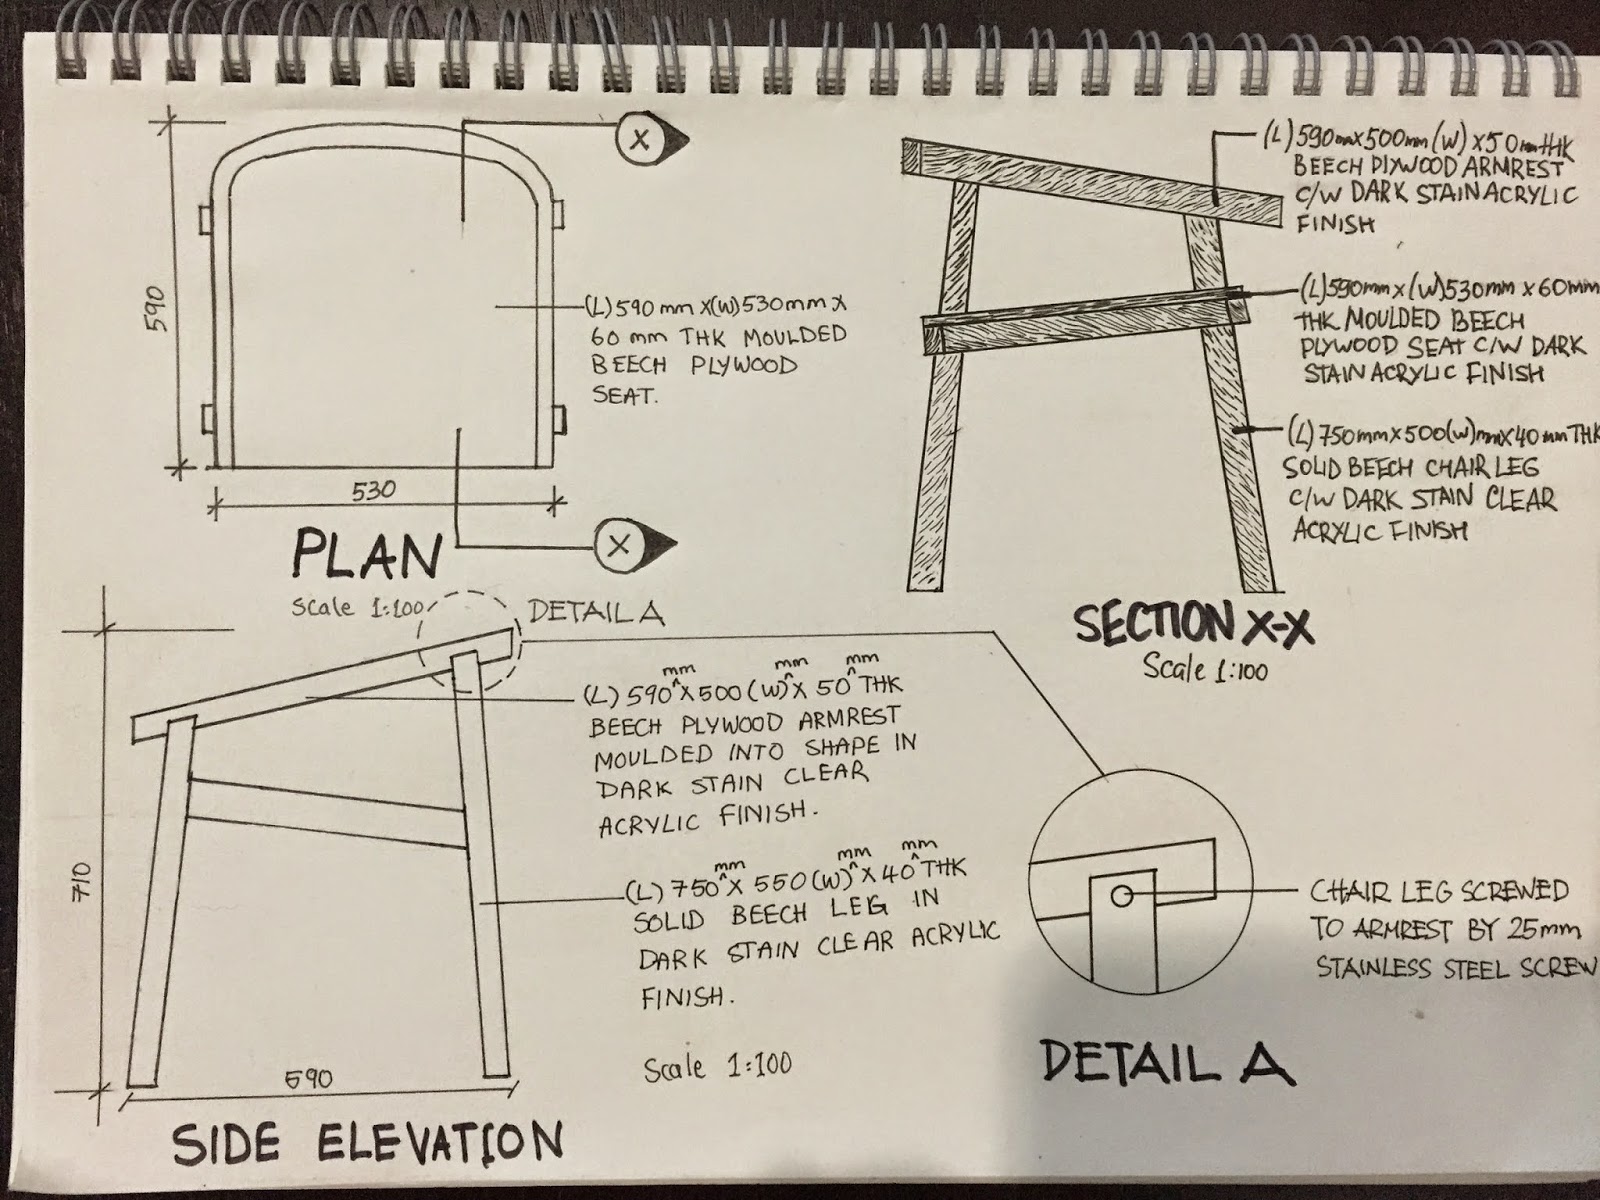 X
590
(L) 590 mm X(W)530mm X
60 mm THK MOULDED
BEECH PLYWOOD
SEAT.
530
X
PLAN
Scale 1:100
(L) 590mmX500mm(W) X50mmTHK
BEECH PLYWOOD ARMREST
C/W DARK STAIN ACRYLIC
FINISH
(L)590mmX(W)530mm X 60mm
THK MOULDED BEECH
PLYWOOD SEAT C/W DARK
STAIN ACRYLIC FINISH
(L) 750mmX500(W)mmX40mmTHK
SOLID BEECH CHAIR LEG
C/W DARK STAIN CLEAR
ACRYLIC FINISH
SECTION X-X
Scale 1:100
DETAIL A
710
(L) 590mm X 500 (W)mm X 50mm THK
BEECH PLYWOOD ARMREST
MOULDED INTO SHAPE IN
DARK STAIN CLEAR
ACRYLIC FINISH.
(L) 750mm X 550(W)mm X 40mm THK
SOLID BEECH LEG IN
DARK STAIN CLEAR ACRYLIC
FINISH.
590
Scale 1:100
SIDE ELEVATION
CHAIR LEG SCREWED
TO ARMREST BY 25mm
STAINLESS STEEL SCREW
DETAIL A